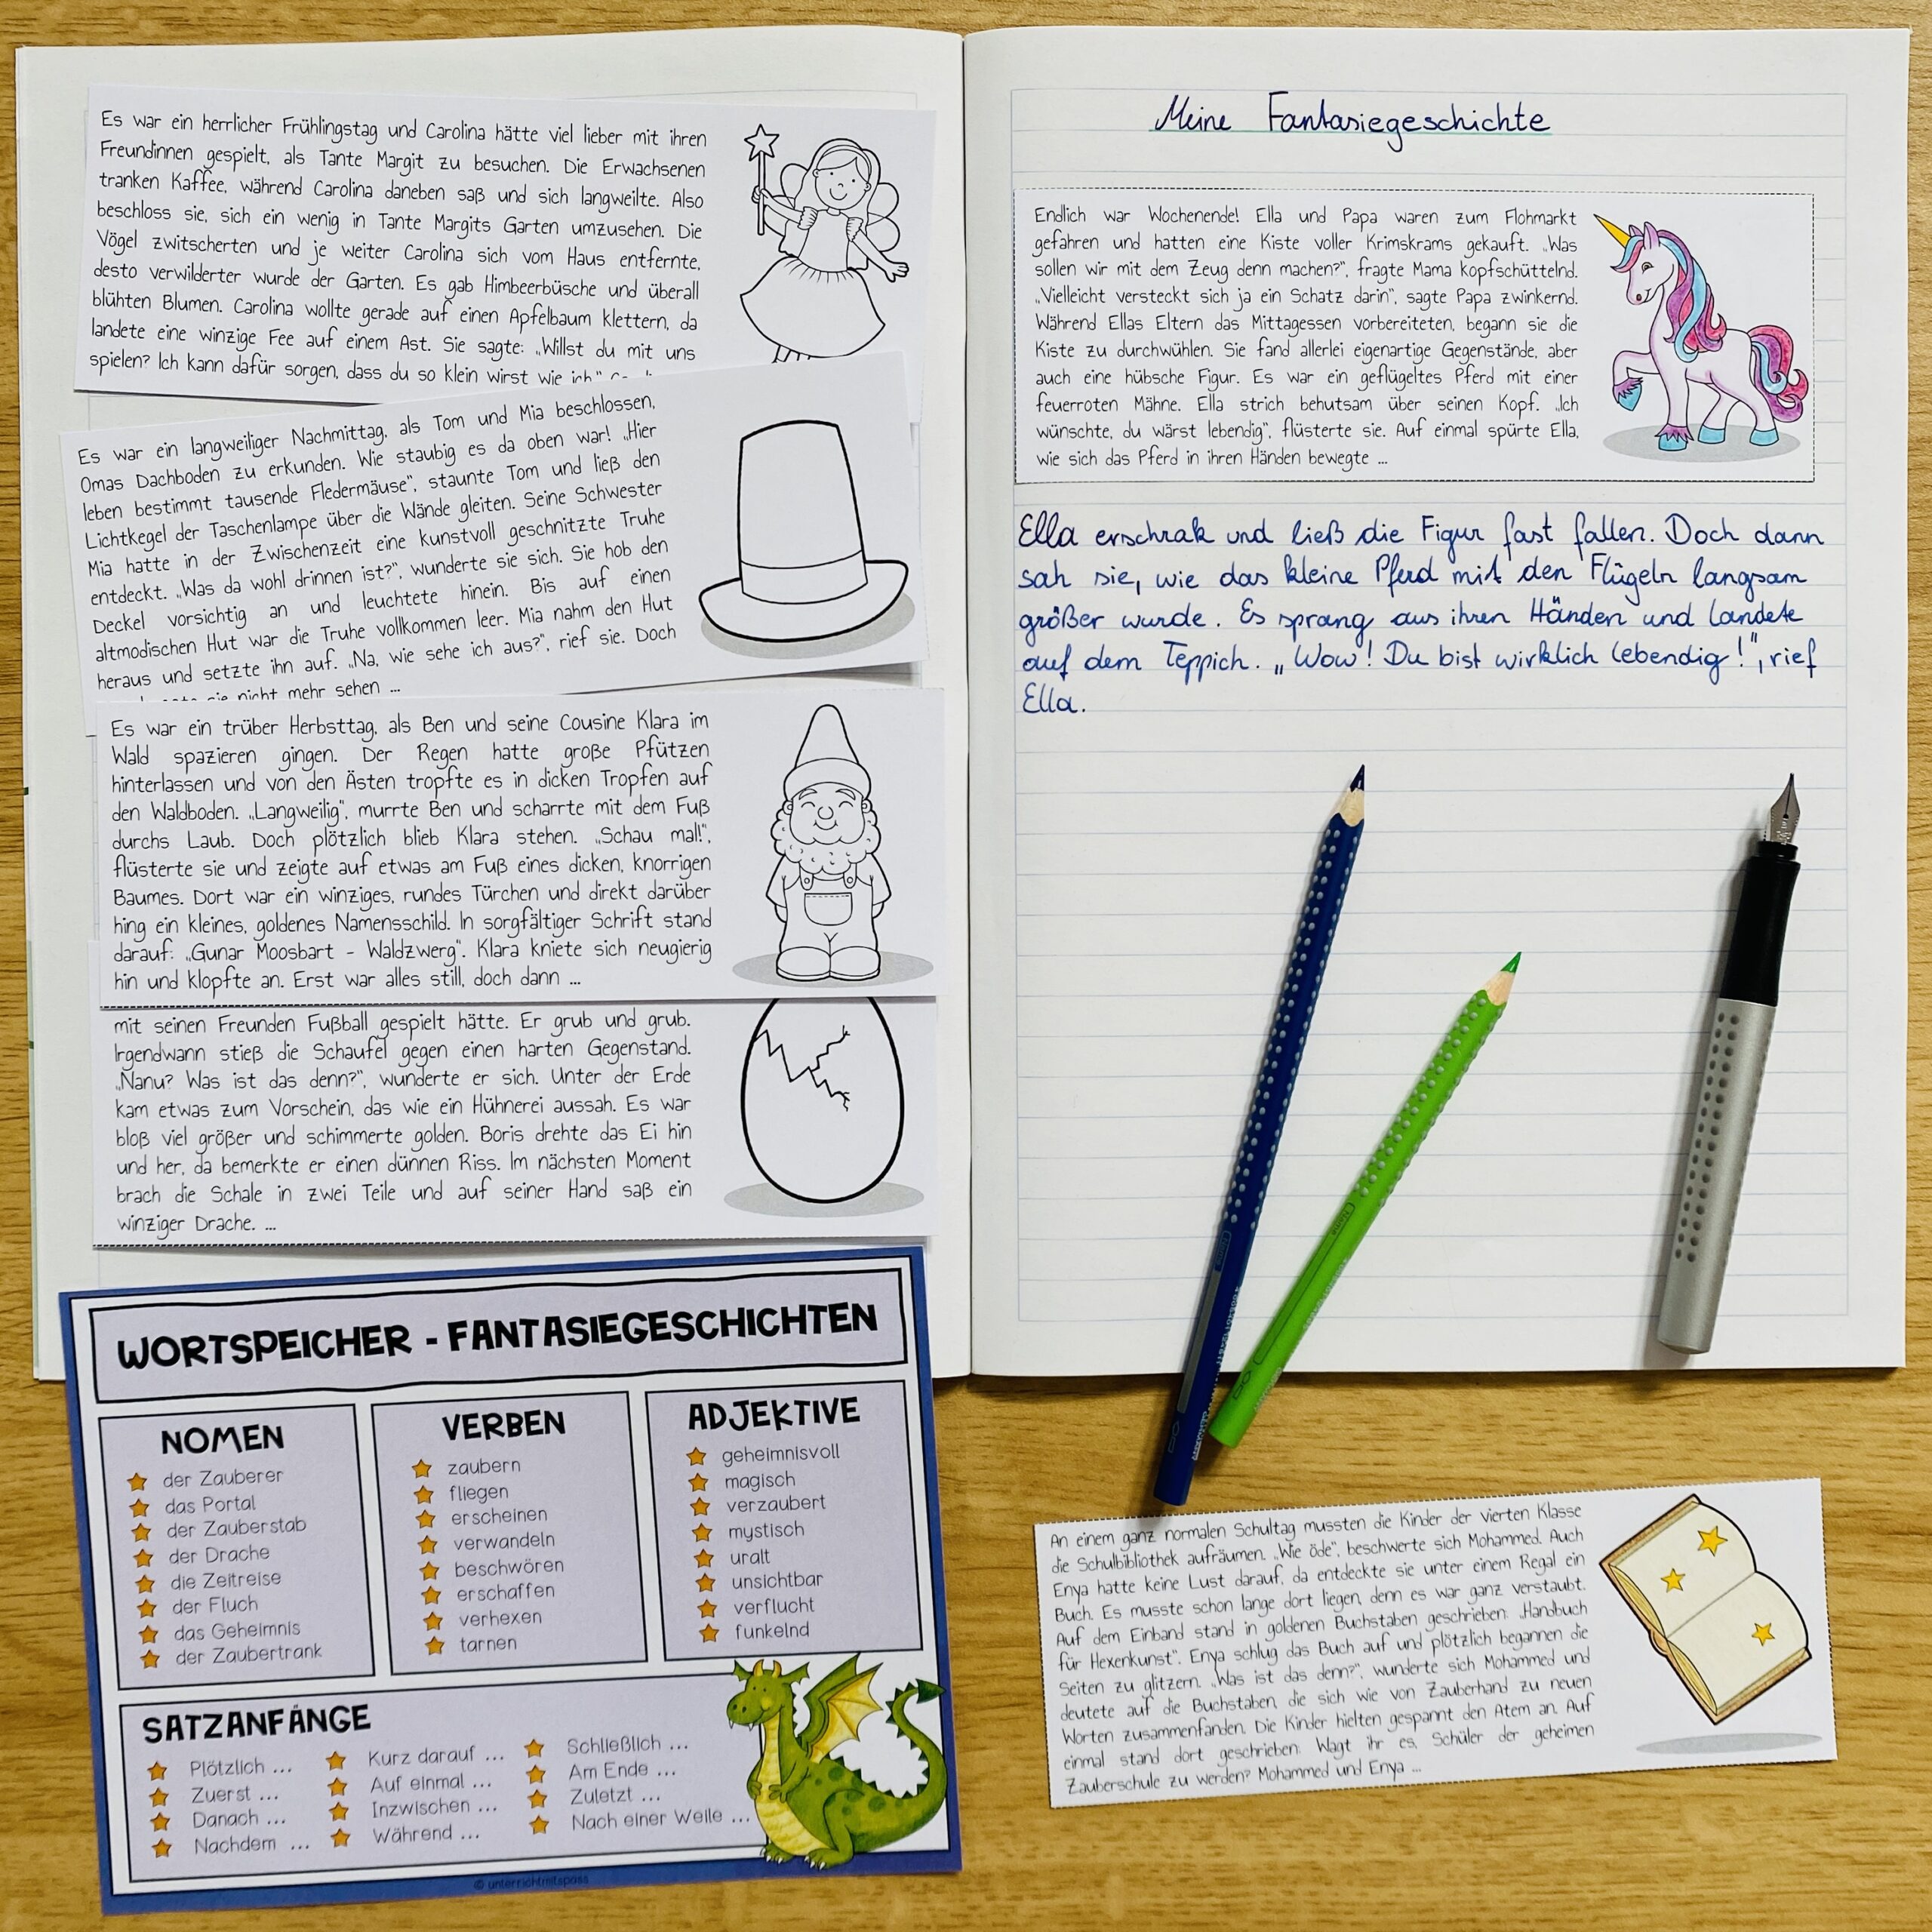 Es war ein herrlicher Frühlingstag und Carolina hätte viel lieber mit ihren
Freundinnen gespielt, als Tante Margit zu besuchen. Die Erwachsenen
tranken Kaffee, während Carolina daneben saß und sich langweilte. Also
beschloss sie, sich ein wenig in Tante Margits Garten umzusehen. Die
Vögel zwitscherten und je weiter Carolina sich vom Haus entfernte,
desto verwilderter wurde der Garten. Es gab Himbeerbüsche und überall
blühten Blumen. Carolina wollte gerade auf einen Apfelbaum klettern, da
landete eine winzige Fee auf einem Ast. Sie sagte: „Willst du mit uns
spielen? Ich kann dafür sorgen, dass du so klein wirst wie ich."
Es war ein langweiliger Nachmittag, als Tom und Mia beschlossen,
Omas Dachboden zu erkunden. Wie staubig es da oben war! „Hier
leben bestimmt tausende Fledermäuse", staunte Tom und ließ den
Lichtkegel der Taschenlampe über die Wände gleiten. Seine Schwester
Mia hatte in der Zwischenzeit eine kunstvoll geschnitzte Truhe
entdeckt. „Was da wohl drinnen ist?", wunderte sie sich. Sie hob den
Deckel vorsichtig an und leuchtete hinein. Bis auf einen
altmodischen Hut war die Truhe vollkommen leer. Mia nahm den Hut
heraus und setzte ihn auf. „Na, wie sehe ich aus?", rief sie. Doch
sie nicht mehr sehen ...
Es war ein trüber Herbsttag, als Ben und seine Cousine Klara im
Wald spazieren gingen. Der Regen hatte große Pfützen
hinterlassen und von den Ästen tropfte es in dicken Tropfen auf
den Waldboden. „Langweilig", murrte Ben und scharrte mit dem Fuß
durchs Laub. Doch plötzlich blieb Klara stehen. „Schau mal!",
flüsterte sie und zeigte auf etwas am Fuß eines dicken, knorrigen
Baumes. Dort war ein winziges, rundes Türchen und direkt darüber
hing ein kleines, goldenes Namensschild. In sorgfältiger Schrift stand
darauf: „Gunar Moosbart - Waldzwerg". Klara kniete sich neugierig
hin und klopfte an. Erst war alles still, doch dann ...
mit seinen Freunden Fußball gespielt hätte. Er grub und grub.
Irgendwann stieß die Schaufel gegen einen harten Gegenstand.
„Nanu? Was ist das denn?", wunderte er sich. Unter der Erde
kam etwas zum Vorschein, das wie ein Hühnerei aussah. Es war
bloß viel größer und schimmerte golden. Boris drehte das Ei hin
und her, da bemerkte er einen dünnen Riss. Im nächsten Moment
brach die Schale in zwei Teile und auf seiner Hand saß ein
winziger Drache. ...
WORTSPEICHER - FANTASIEGESCHICHTEN
NOMEN
der Zauberer
das Portal
der Zauberstab
der Drache
die Zeitreise
der Fluch
das Geheimnis
der Zaubertrank
VERBEN
zaubern
fliegen
erscheinen
verwandeln
beschwören
erschaffen
verhexen
tarnen
ADJEKTIVE
geheimnisvoll
magisch
verzaubert
mystisch
uralt
unsichtbar
verflucht
funkelnd
SATZANFÄNGE
Plötzlich ...
Zuerst ...
Danach ...
Nachdem ...
Kurz darauf ...
Auf einmal ...
Inzwischen ...
Während ...
Schließlich ...
Am Ende ...
Zuletzt ...
Nach einer Weile ...
© unterrichtmitspass
Meine Fantasiegeschichte
Endlich war Wochenende! Ella und Papa waren zum Flohmarkt
gefahren und hatten eine Kiste voller Krimskrams gekauft. „Was
sollen wir mit dem Zeug denn machen?", fragte Mama kopfschüttelnd.
„Vielleicht versteckt sich ja ein Schatz darin", sagte Papa zwinkernd.
Während Ellas Eltern das Mittagessen vorbereiteten, begann sie die
Kiste zu durchwühlen. Sie fand allerlei eigenartige Gegenstände, aber
auch eine hübsche Figur. Es war ein geflügeltes Pferd mit einer
feuerroten Mähne. Ella strich behutsam über seinen Kopf. „Ich
wünschte, du wärst lebendig", flüsterte sie. Auf einmal spürte Ella,
wie sich das Pferd in ihren Händen bewegte ...
Ella erschrak und ließ die Figur fast fallen. Doch dann
sah sie, wie das kleine Pferd mit den Flügeln langsam
größer wurde. Es sprang aus ihren Händen und landete
auf dem Teppich. „Wow! Du bist wirklich lebendig!", rief
Ella.
An einem ganz normalen Schultag mussten die Kinder der vierten Klasse
die Schulbibliothek aufräumen. „Wie öde", beschwerte sich Mohammed. Auch
Enya hatte keine Lust darauf, da entdeckte sie unter einem Regal ein
Buch. Es musste schon lange dort liegen, denn es war ganz verstaubt.
Auf dem Einband stand in goldenen Buchstaben geschrieben: „Handbuch
für Hexenkunst". Enya schlug das Buch auf und plötzlich begannen die
Seiten zu glitzern. „Was ist das denn?", wunderte sich Mohammed und
deutete auf die Buchstaben, die sich wie von Zauberhand zu neuen
Worten zusammenfanden. Die Kinder hielten gespannt den Atem an. Auf
einmal stand dort geschrieben: Wagt ihr es, Schüler der geheimen
Zauberschule zu werden? Mohammed und Enya ...